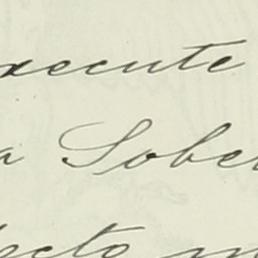 xecute
a Sober
ecto m